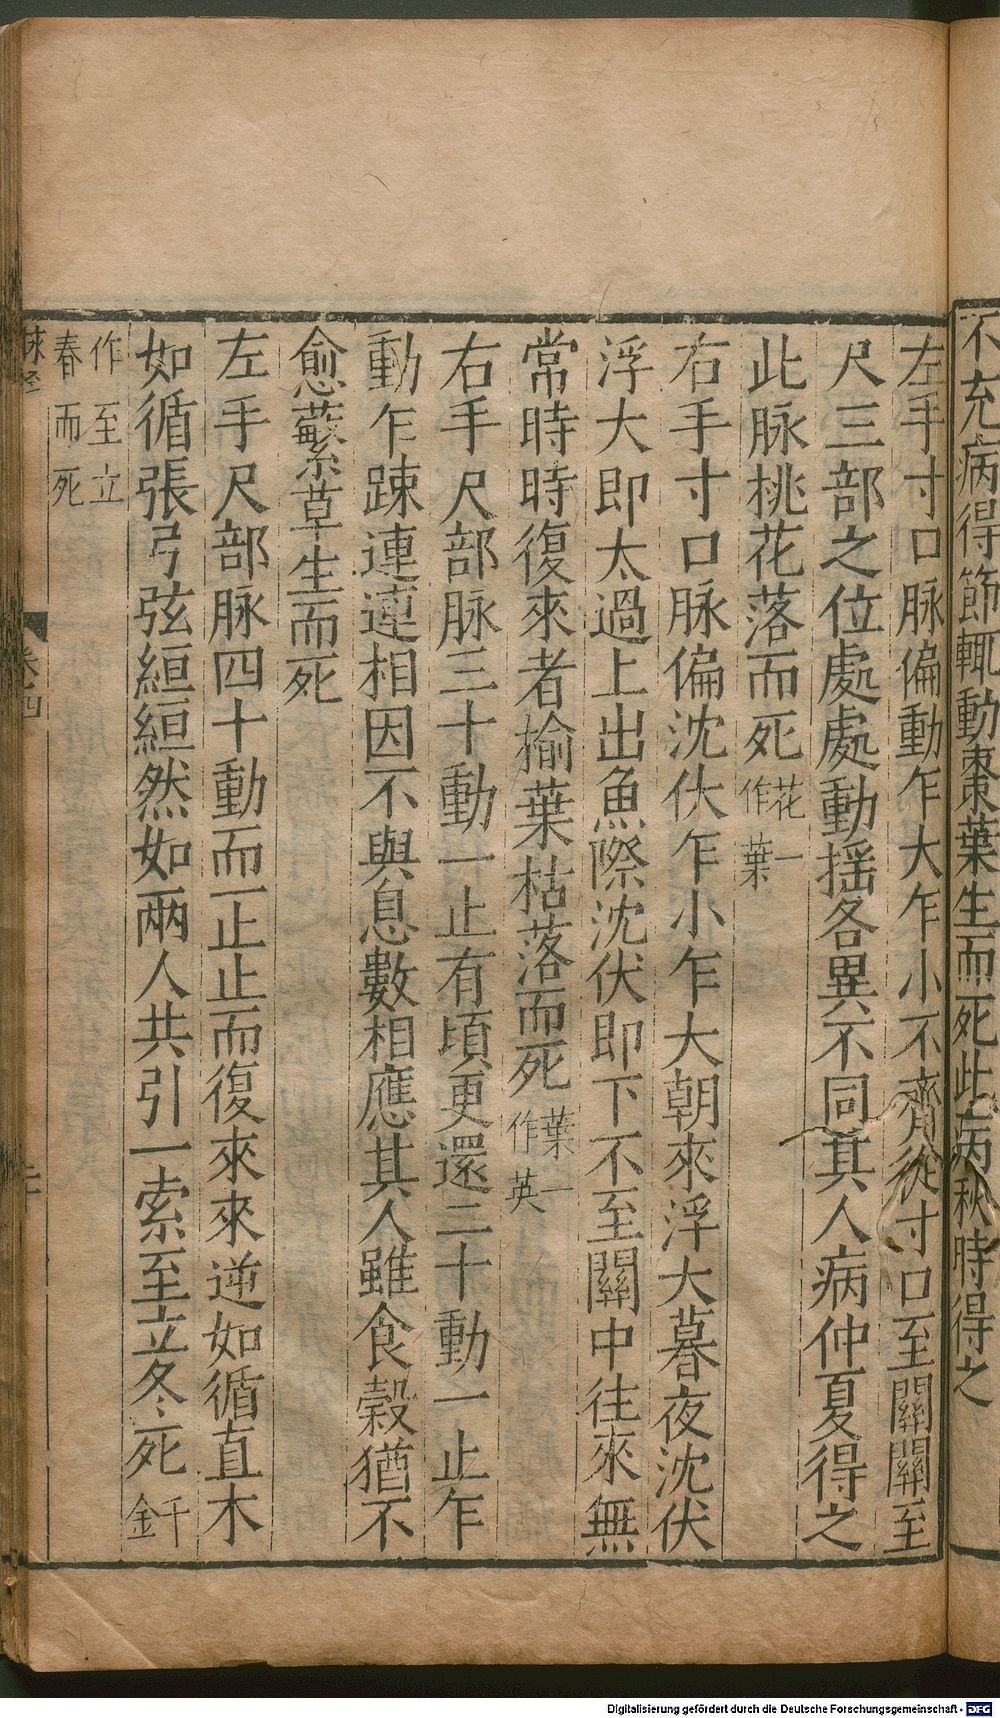 不充病得節輒動棗葉生而死此病秋時得之
左手寸口脉偏動乍大乍小不齊從寸口至關關至
尺三部之位處處動揺各異不同其人病仲夏得之
此脉桃花落而死花一作葉
右手寸口脉偏沈伏乍小乍大朝來浮大暮夜沈伏
浮大即太過上出魚際沈伏即下不至關中往來無
常時時復來者揄葉枯落而死葉一作英
右手尺部脉三十動一止有頃更還二十動一止乍
動乍踈連連相因不與息數相應其人雖食穀猶不
愈蘩草生而死
左手尺部脉四十動而一止止而復來來逆如循直木
如循張弓弦絙絙然如兩人共引一索至立冬死千金
作至立春而死
脉経 卷四
Digitalisierung gefördert durch die Deutsche Forschungsgemeinschaft - DFG